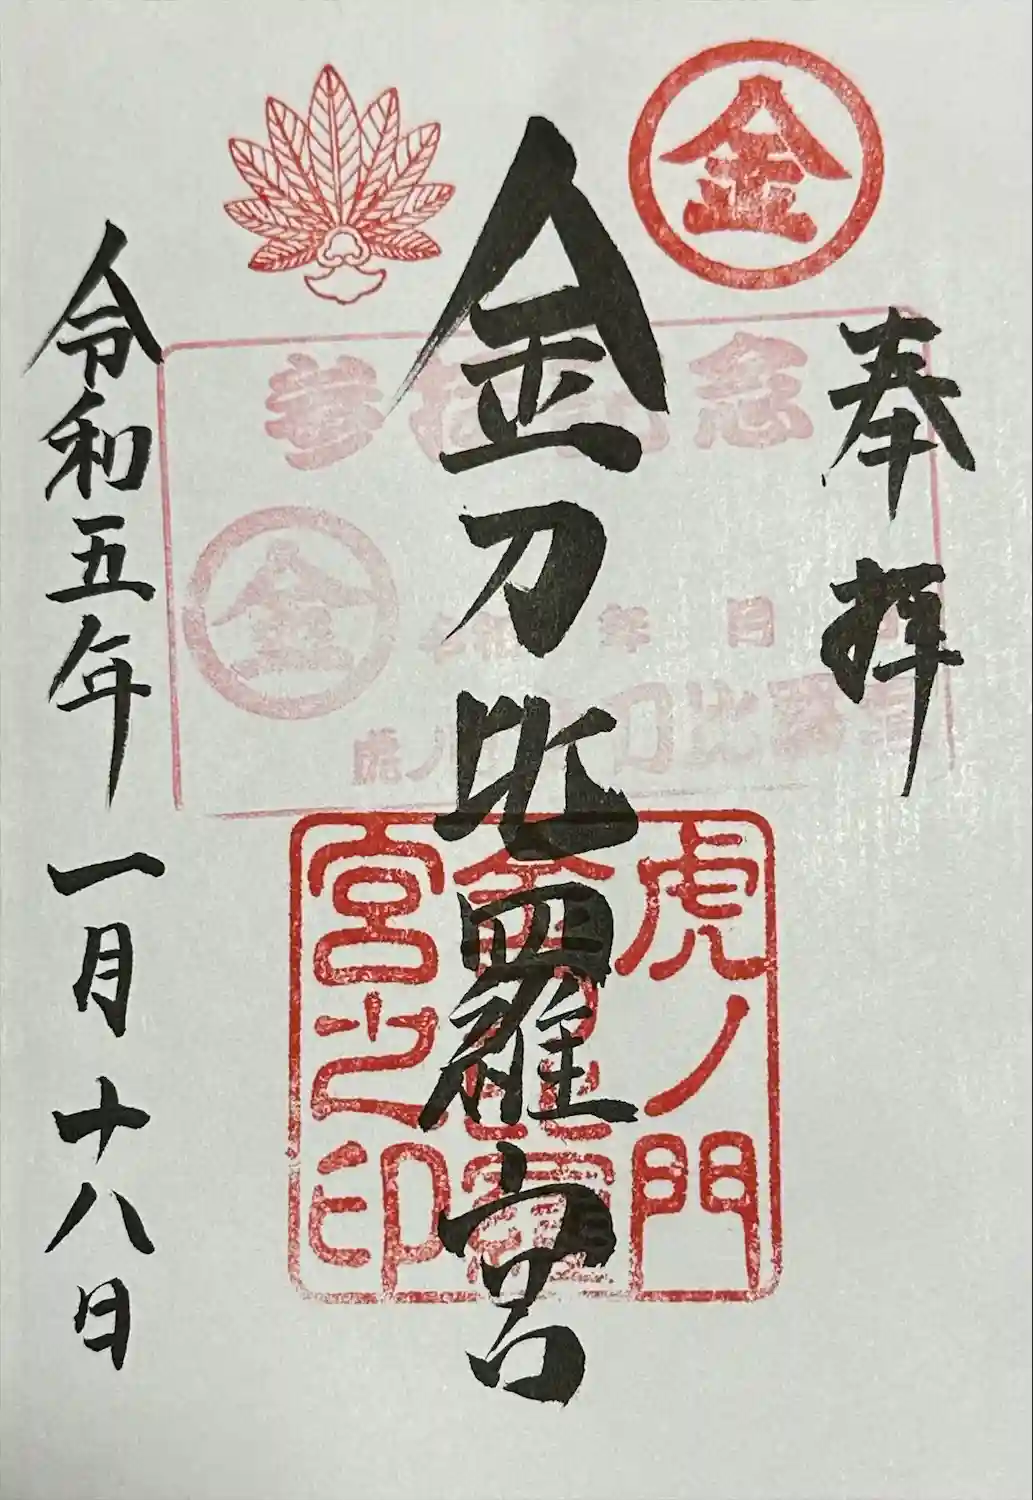 奉拝
金
金刀比羅宮
虎ノ門
金刀比羅
宮之印
参拝記念
金
年 月 日
虎ノ門金刀比羅宮
令和五年一月十八日